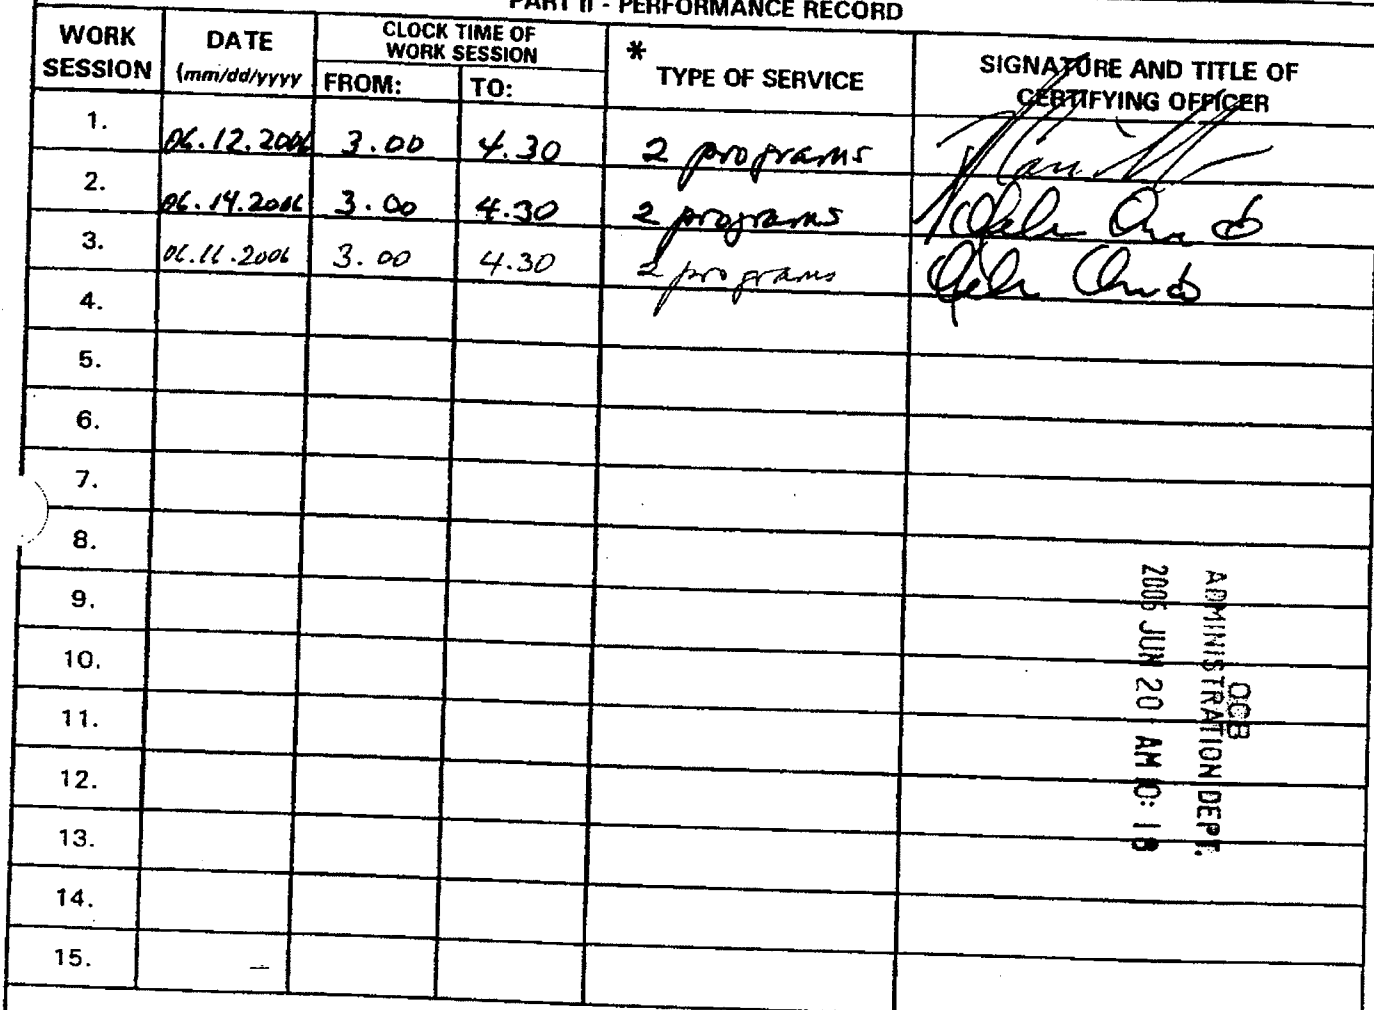 PART II - PERFORMANCE RECORD
WORK SESSION DATE (mm/dd/yyyy CLOCK TIME OF WORK SESSION FROM: TO: * TYPE OF SERVICE SIGNATURE AND TITLE OF CERTIFYING OFFICER
1. 06.12.2006 3.00 4.30 2 programs
2. 06.14.2006 3.00 4.30 2 programs
3. 2006 3.00 4.30 2 programs
4.
5.
6.
7.
8.
9.
10.
11.
12.
13.
14.
15.
OCB
ADMINISTRATION DEPT.
2006 JUN 20 AM 10:18